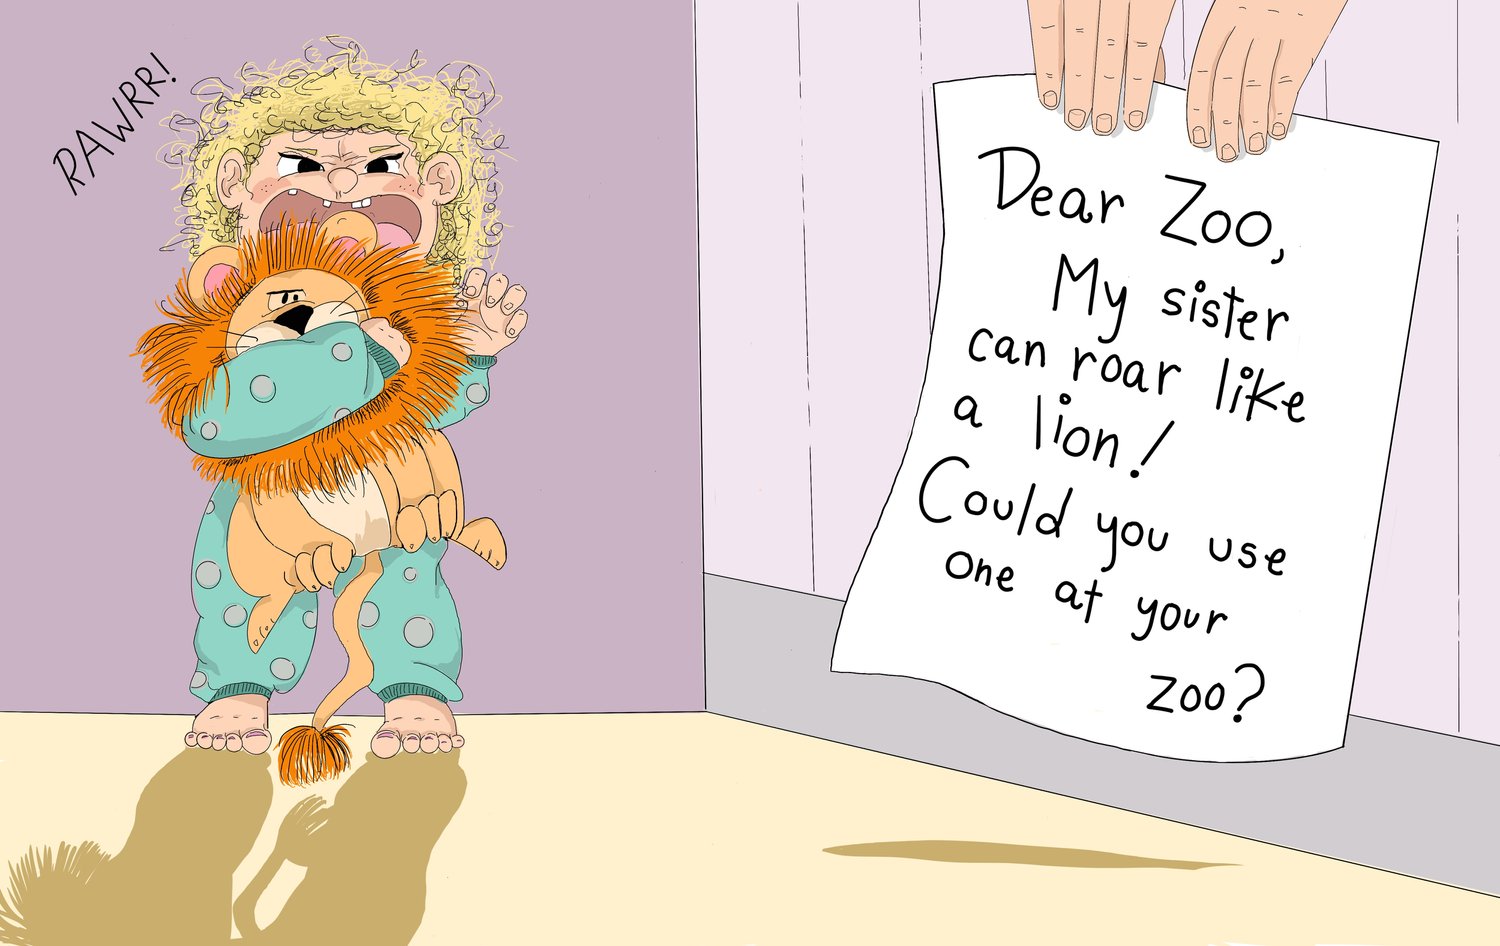 RAWRR!
Dear Zoo,
My sister
can roar like
a lion!
Could you use
one at your
zoo?